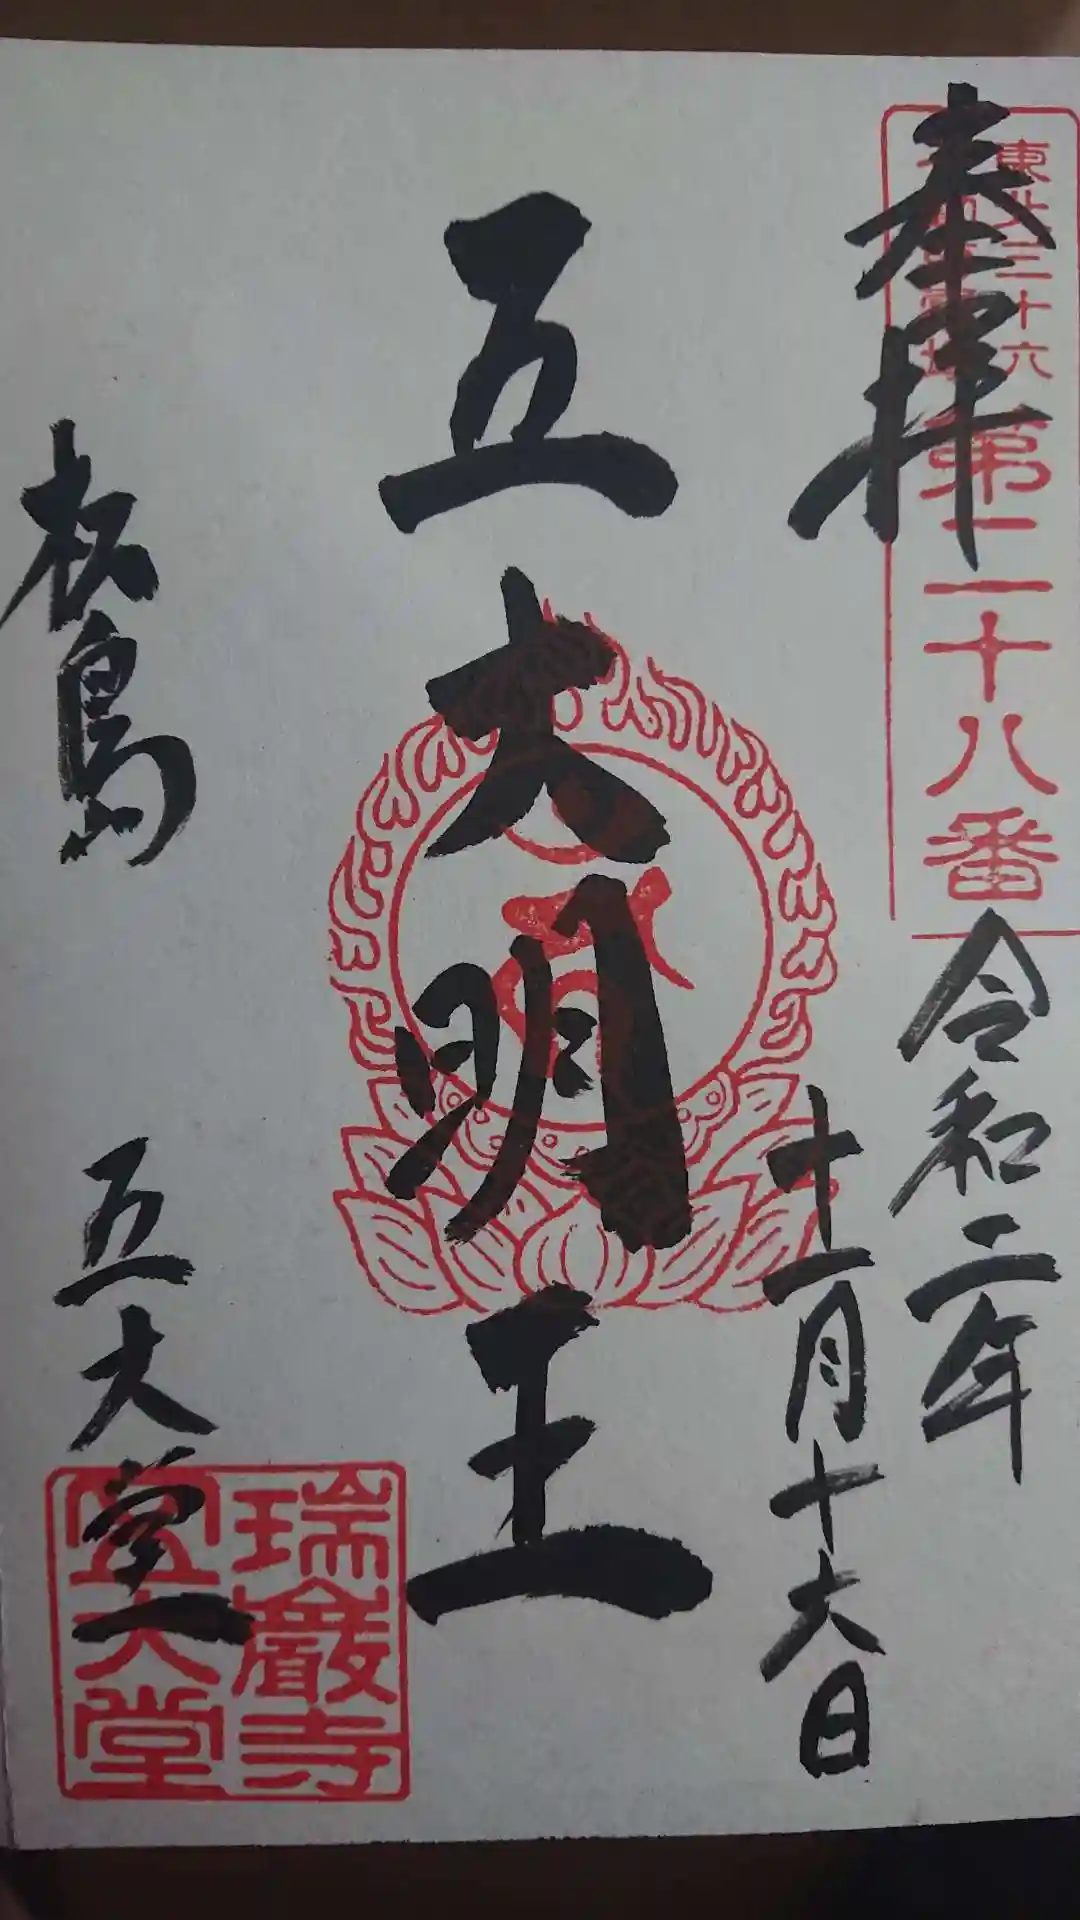 奉拝
東北三十六
第二十八番
令和二年
十一月十六日
五大明王
松島
五大堂
瑞巖寺
五大堂